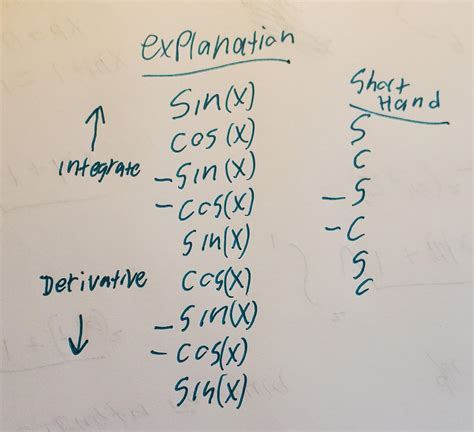 explanation
Sin(x)
cos(x)
-Sin(x)
-cos(x)
Sin(x)
cos(x)
-Sin(x)
-cos(x)
Sin(x)
↑
integrate
Derivative
↓
Short
Hand
S
C
-S
-C
S
C